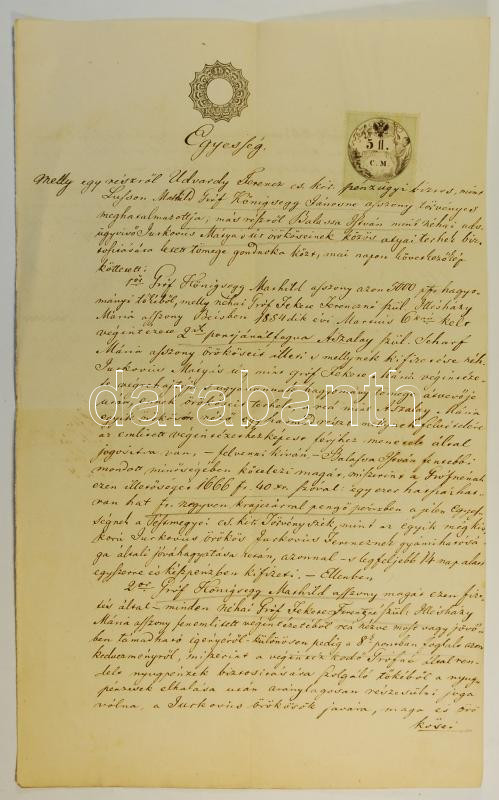 5 fl.
C. M.
Egyesség.
Melly egy részről Udvardy Ferencz cs. kir. pénzügyi biztos, mint
Mathild Gróf Königsegg Jánosné asszony törvényes
meghatalmazottja, más részről Balassa István mint néhai
ügyvivő Jurkovics Mátyás úr örököseinek közös atyai terhek biz-
tosítására tett tömege gondnoka közt, mai napon következőleg
köttetett:
1ör Gróf Königsegg Mathild asszony azon 5000 pft hagyo-
mányi tőkéből, melly néhai Gróf Fekete Ferenczné szül. Illésházy
Mária asszony Bécsben 1854dik évi Martius 6kán kelt
végintézete 2ik pontjánál fogva Aszalay szül. Scharf
Mária asszony örököseit illeti s mellynek kifizetése néh.
Jurkovics Mátyás úr mint gróf Fekete Mária végintéze-
te végrehajtója s ugyan hagyomány tömege átvevője
után örököseit terheli,
egyharmadrészt mellynek felvételére
az említett végintézethez képest férjhez menetele által
jogosítva van, – felvenni kíván, – Balassa István fentebbi
mondott minőségében kötelezi magát, miszerint a Grófnénak
ezen illetőségét 1666 fr. 40 xr. szóval: Egy ezer hatszáz hat-
van hat fr. negyven krajczárral pengő pénzben a jelen Egyes-
ségnek a Pestmegyei cs. kir. Törvényszék, mint az egyik még kis-
korú Jurkovics örökös Jurkovics Ferencznek gyámhatósá-
ga általi jóváhagyatása után, azonnal – s legfeljebb 14 nap alatt
egyszerre és készpénzben kifizeti. – Ellenben
2or Gróf Königsegg Mathild asszony magát ezen fize-
tés által – minden néhai Gróf Fekete Ferencz szül: Illésházy
Mária asszony fenemlített végintézetéből reá nézve most vagy jövő-
ben támadható igényeiről – különösen pedig a 8ik pontban foglalt azon
kedvezményről, miszerint a végintézkedő Grófné által ren-
delt nyugpénzek biztosítására szolgáló tőkéből a nyug-
pénzesek elhalása után aránylagosan részesülni joga
volna, a Jurkovics örökösök javára, maga és örö
kösei
darabanth